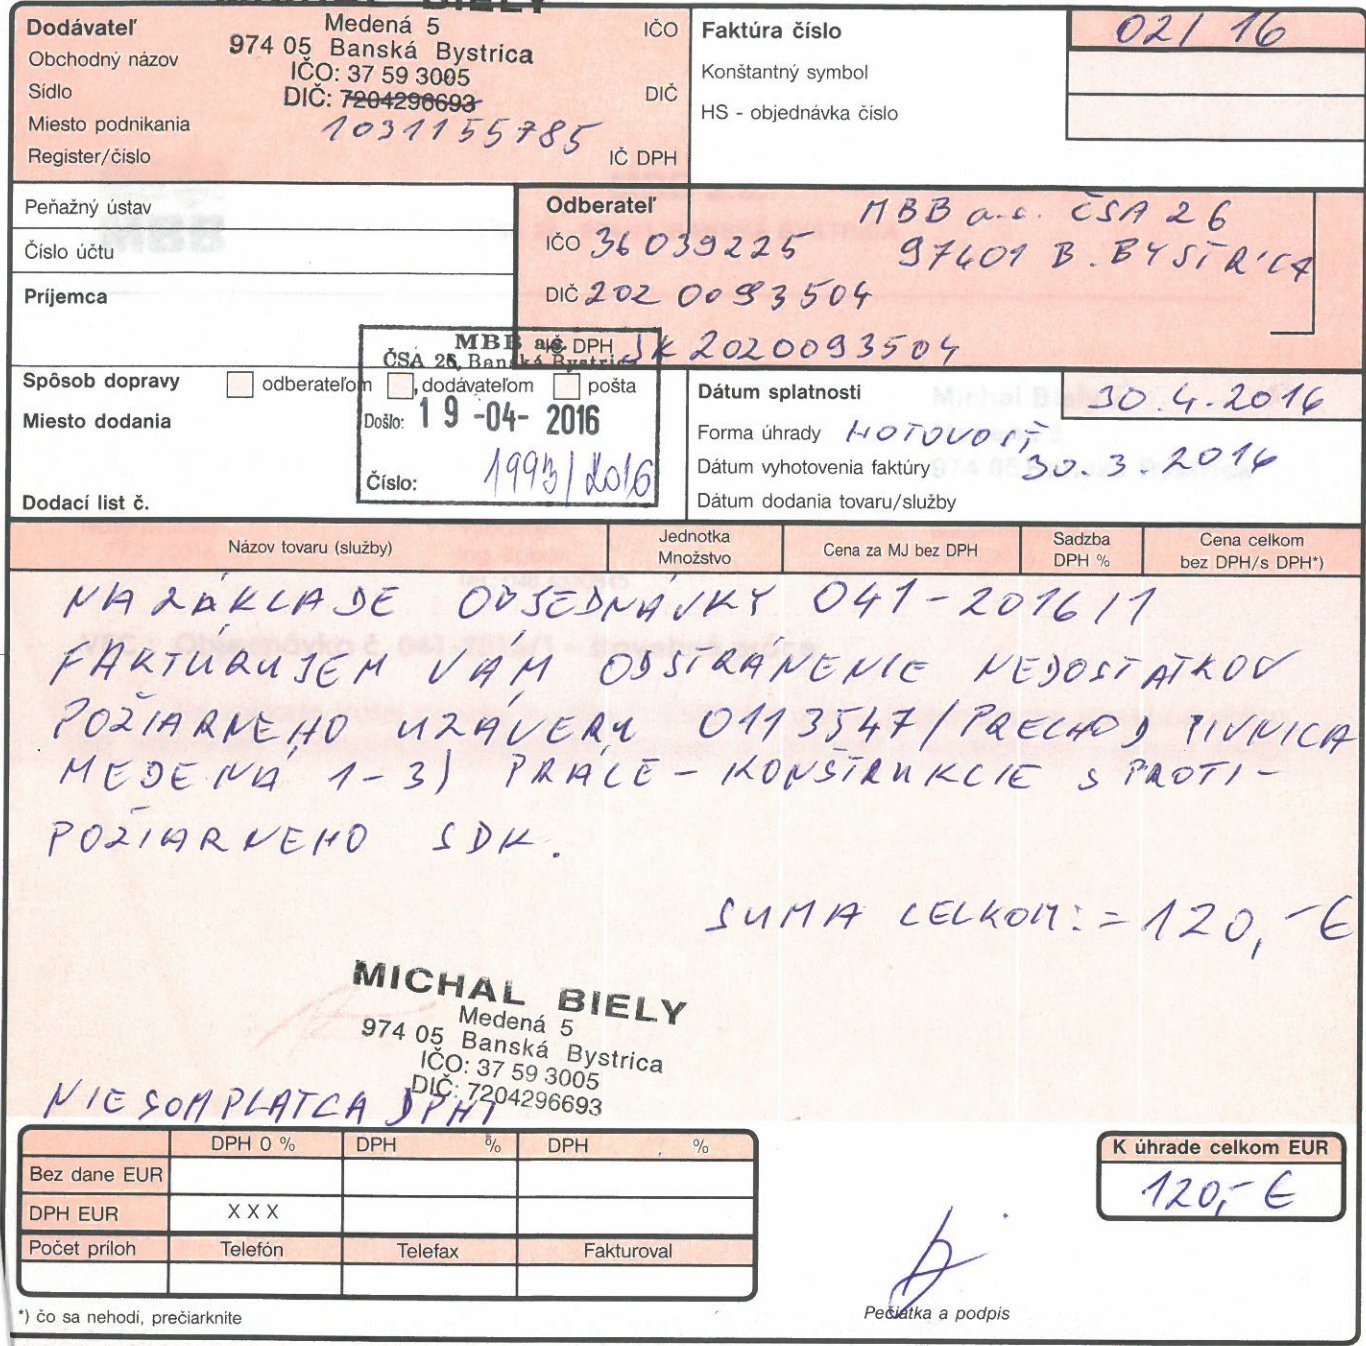 MICHAL BIELY
Dodávateľ
Medená 5
IČO
Obchodný názov
974 05 Banská Bystrica
Sídlo
IČO: 37 59 3005
DIČ: 7204296693
DIČ
Miesto podnikania
1031155785
Register/číslo
IČ DPH
Faktúra číslo
02/ 16
Konštantný symbol
HS - objednávka číslo
Peňažný ústav
Číslo účtu
Príjemca
Odberateľ
MBB a.s. ČSA 26
IČO 36039225
97401 B. BYSTRICA
DIČ 2020093504
IČ DPH SK 2020093504
MBB a.s.
ČSA 26, Banská Bystrica
Došlo: 19 -04- 2016
Číslo: 1993/2016
Spôsob dopravy odberateľom dodávateľom pošta
Miesto dodania
Dodací list č.
Dátum splatnosti 30.4.2016
Forma úhrady HOTOVOSŤ
Dátum vyhotovenia faktúry 30.3.2016
Dátum dodania tovaru/služby
Názov tovaru (služby)
Jednotka
Množstvo
Cena za MJ bez DPH
Sadzba
DPH %
Cena celkom
bez DPH/s DPH*)
NA ZÁKLADE OBJEDNÁVKY 041-2016/1
FAKTURUJEM VÁM ODSTRÁNENIE NEDOSTATKOV
POŽIARNEHO UZÁVERU 0113547/PRECHOD PIVNICA
MEDENÁ 1-3) PRÁCE - KONŠTRUKCIE S PROTI-
POŽIARNEHO SDK.
SUMA CELKOM: = 120,-€
MICHAL BIELY
Medená 5
974 05 Banská Bystrica
IČO: 37 59 3005
DIČ: 7204296693
NIE SOM PLATCA DPH!
DPH 0 % DPH % DPH %
Bez dane EUR
DPH EUR X X X
Počet príloh Telefón Telefax Fakturoval
K úhrade celkom EUR
120,- €
*) čo sa nehodí, prečiarknite
Pečiatka a podpis